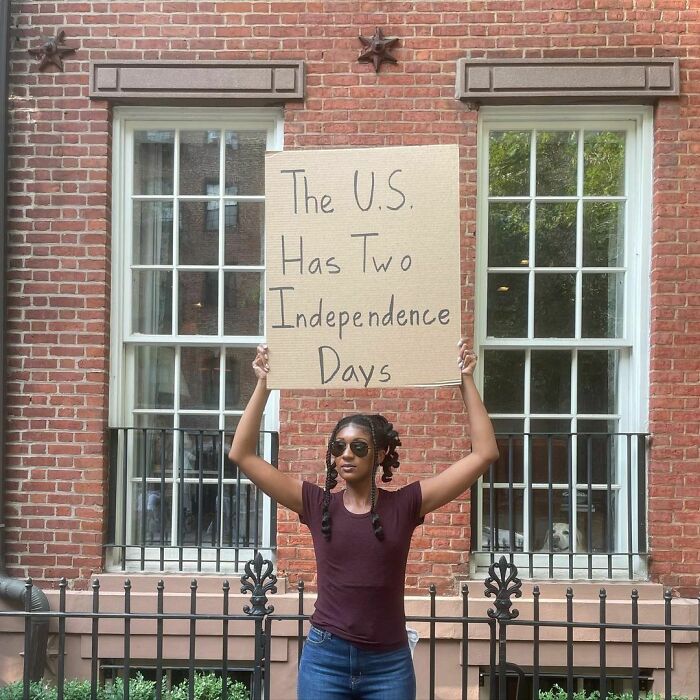 The U.S.
Has Two
Independence
Days